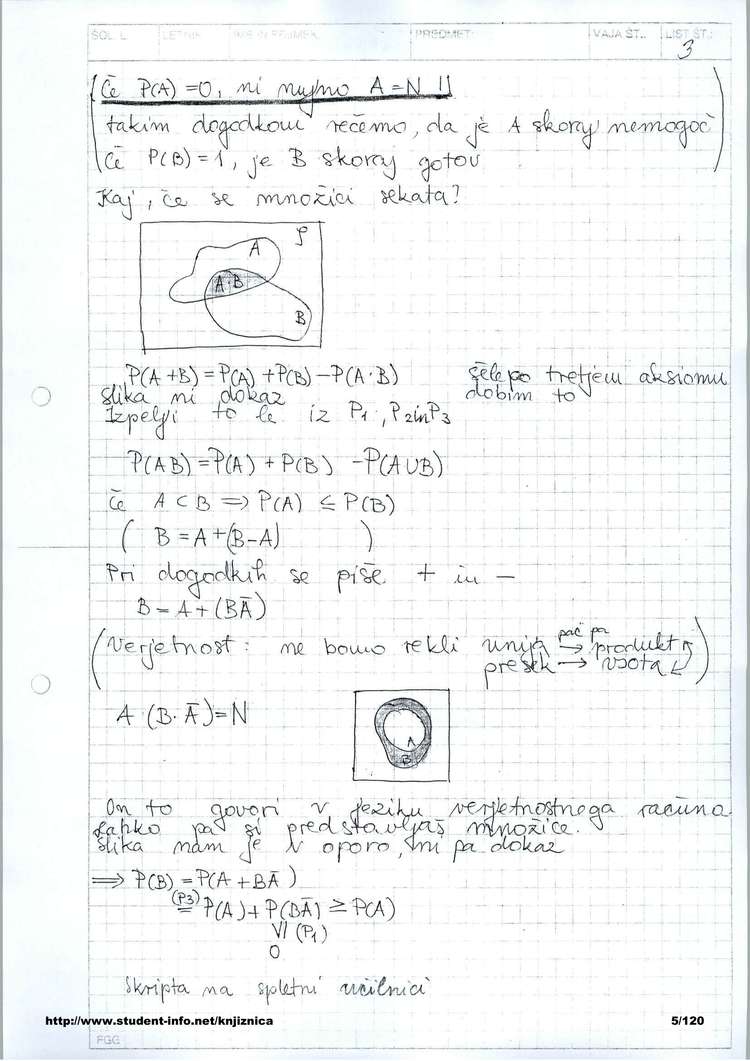 ŠOL. L. LETNIK IME IN PRIIMEK PREDMET: VAJA ŠT.: LIST ŠT.:
3
(Če P(A) = 0, ni nujno A = N !!
takim dogodkom rečemo, da je A skoraj nemogoč
Če P(B) = 1, je B skoraj gotov)
Kaj, če se množici sekata?
A
A·B
B
P(A + B) = P(A) + P(B) − P(A·B) šele po tretjem aksiomu
slika ni dokaz dobim to
Izpelji to le iz P1, P2 in P3
P(AB) = P(A) + P(B) − P(A∪B)
Če A ⊂ B ⟹ P(A) ≤ P(B)
( B = A + (B−A) )
Pri dogodkih se piše + in −
B = A + (BĀ)
(verjetnost: ne bomo rekli unija pač pa → produkt
presek → vsota)
A · (B · Ā) = N
A
B
On to govori v jeziku verjetnostnega računa.
Lahko pa si predstavljaš množice.
Slika nam je v oporo, ni pa dokaz
⟹ P(B) = P(A + BĀ)
(P3)
= P(A) + P(BĀ) ≥ P(A)
V/ (P1)
0
Skripta na spletni učilnici
http://www.student-info.net/knjiznica 5/120
FGG